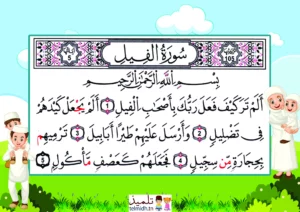 سُورَةُ الفِيلِ
بِسْمِ اللَّهِ الرَّحْمَٰنِ الرَّحِيمِ
أَلَمْ تَرَ كَيْفَ فَعَلَ رَبُّكَ بِأَصْحَٰبِ الْفِيلِ 1 أَلَمْ يَجْعَلْ كَيْدَهُمْ
فِي تَضْلِيلٍ 2 وَأَرْسَلَ عَلَيْهِمْ طَيْرًا أَبَابِيلَ 3 تَرْمِيهِم
بِحِجَارَةٍ مِّن سِجِّيلٍ 4 فَجَعَلَهُمْ كَعَصْفٍ مَّأْكُولٍ 5
تلميذ
telmidh.tn